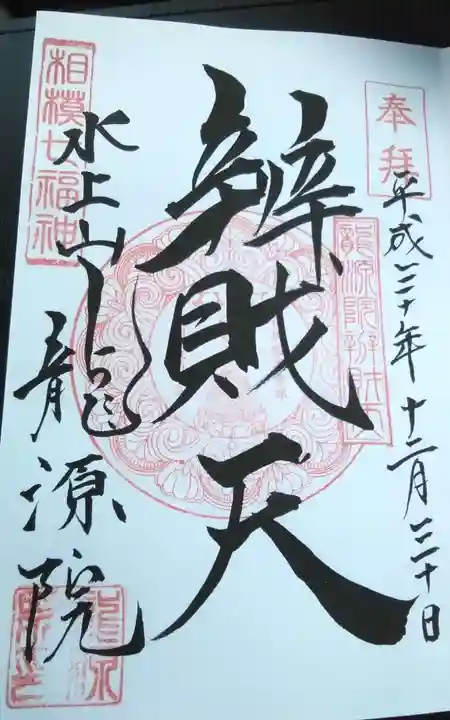 奉拝
平成三十年十二月三十日
龍源院辨財天
辨財天
相模七福神
水上山龍源院